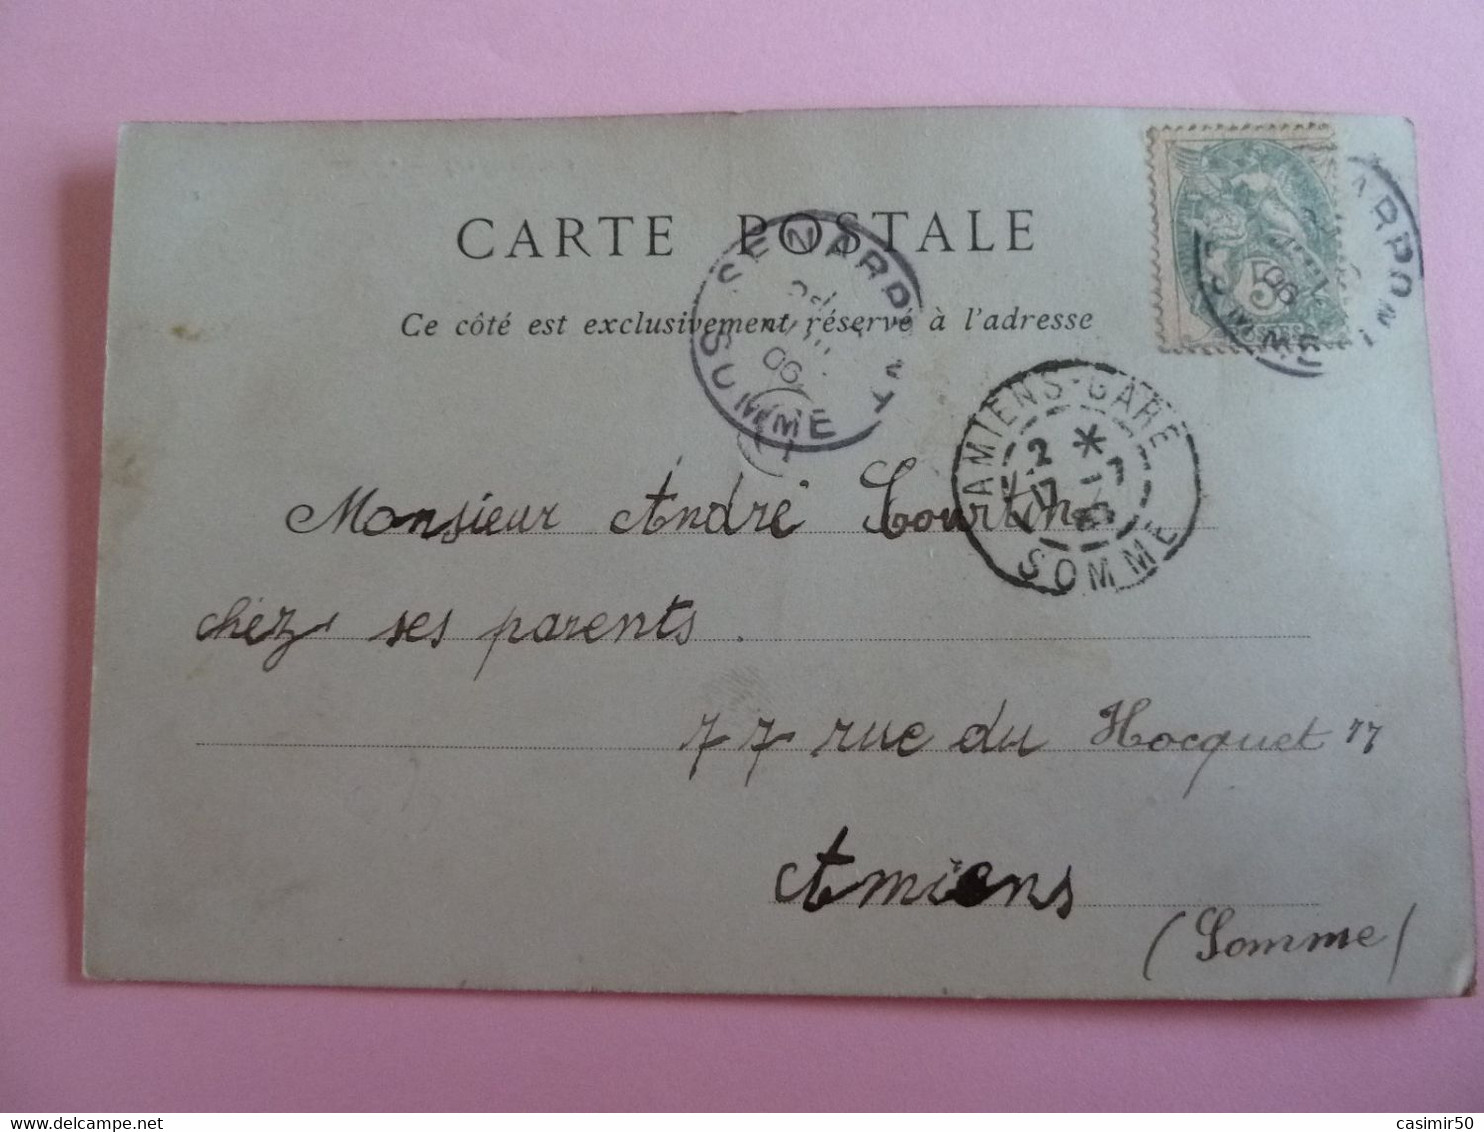 CARTE POSTALE
Ce côté est exclusivement réservé à l'adresse
SENARPONT
06
SOMME
ARPON
5
06
POSTES
AMIENS-GARE
2 *
17 -7
SOMME
Monsieur André Courtin
chez ses parents.
77 rue du Hocquet 77
Amiens
(Somme)
delcampe.net
casimir50